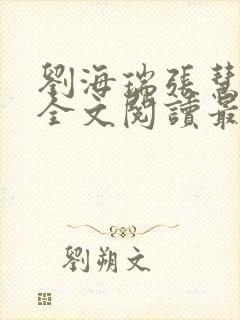 劉海瑞張慧
全文閱讀最
劉朔文